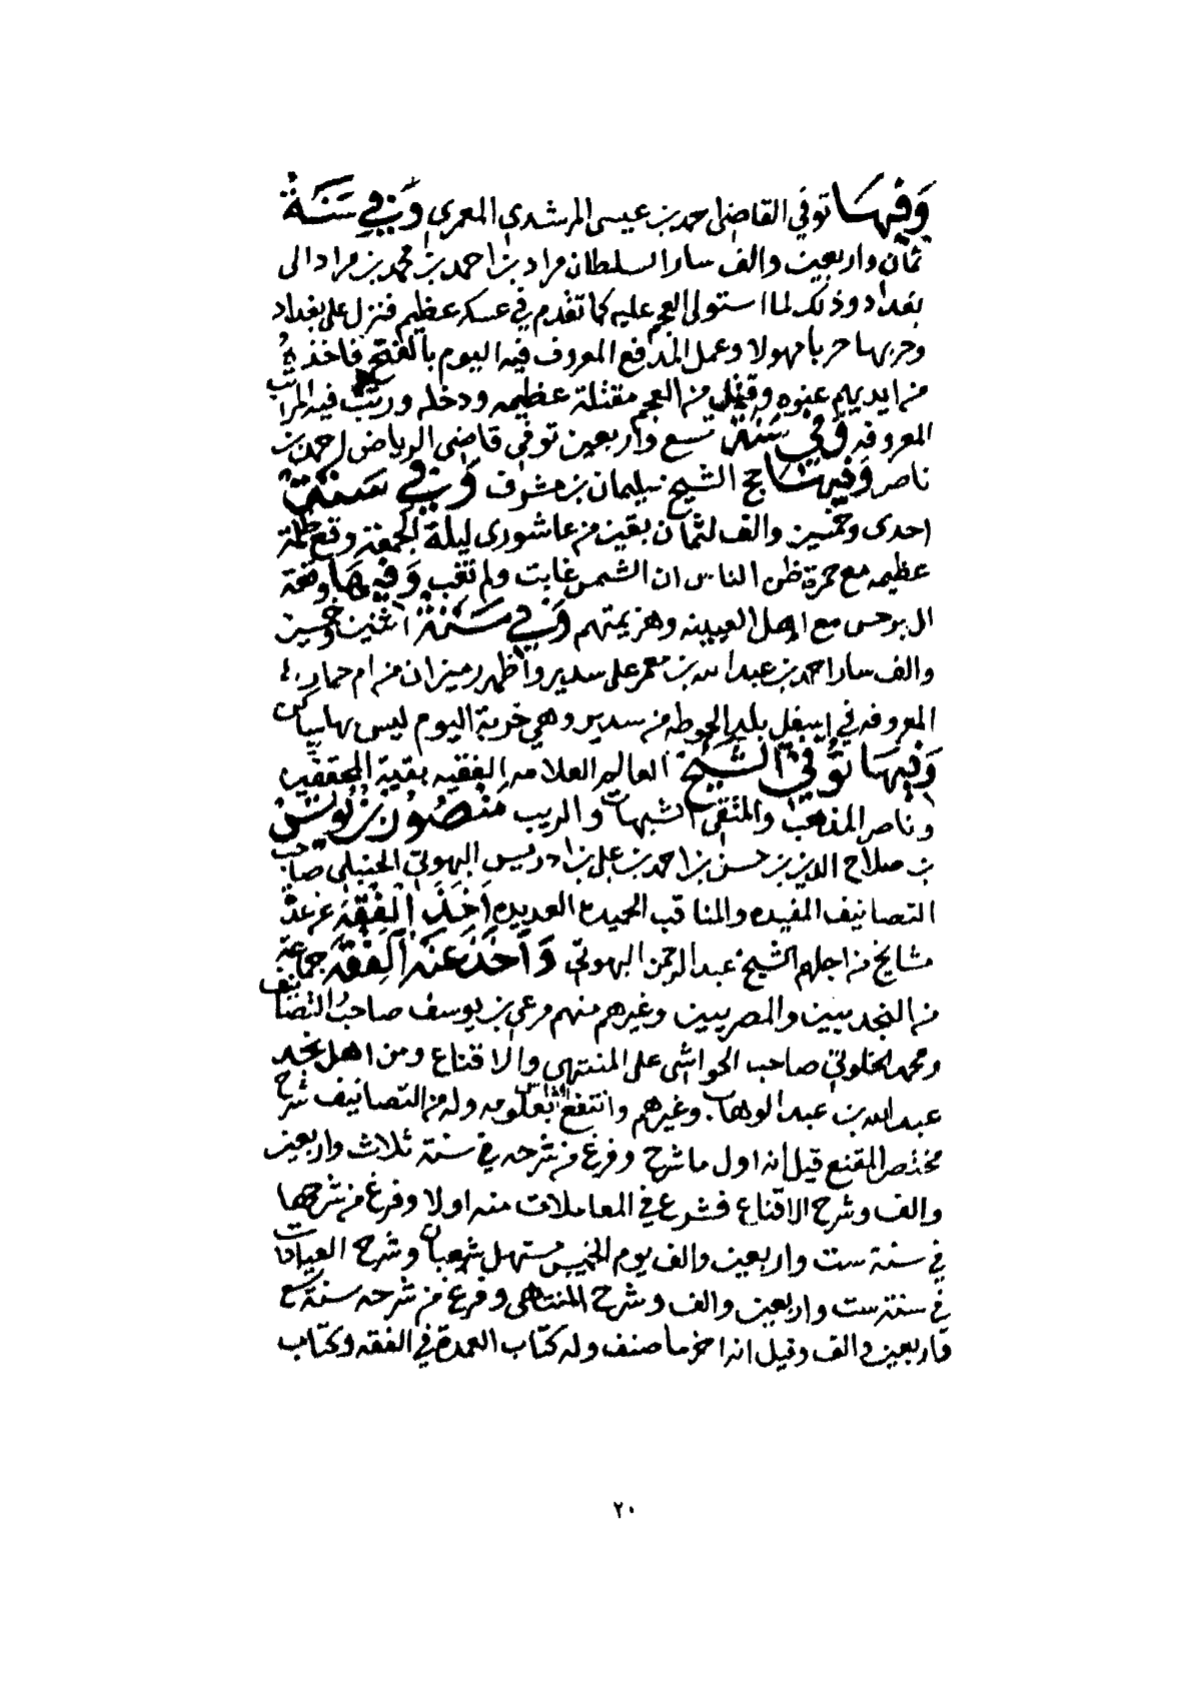 وَفِيهَا توفي القاضي احمد بن عيسى المرشدي المعمري وَفِي سَنَةُ
ثمان واربعين والف سار السلطان مراد بن احمد بن محمد بن مراد الى
بغداد وذلك لما استولى العجم عليه كما تقدم في عسكر عظيم فنزل على بغداد
وحربها حربا مهولا وعمل المدفع المعروف فيه اليوم بالفتح فاخذهُ
من ايديهم عنوه وقتل من العجم مقتلة عظيمه ودخله ورتب فيه المراتب
المعروفه وَفِي سَنَةِ تسع واربعين توفي قاضي الرياض احمد بن
ناصر وَفِيهَا حج الشيخ سليمان بن مشرف وَفِي سَنَة
احدى وخمسين والف لثمان بقين من عاشورى ليلة الجمعة وقع ظلمة
عظيمه مع حمرة ظن الناس ان الشمس غابت ولم تغب وَفِيهَا وقعة
ال بو حس مع اهل العيينه وهزيمتهم وَفِي سَنَةُ اثنين وخمسين
والف سار احمد بن عبد الله بن معمر على سدير واظهر رميزان من ام حمار
المعروفه في اسفل بلد الحوطه من سدير وهي خربة اليوم ليس بها ساكن
وَفِيهَا تُوُفِّيَ الشَّيْخُ العالم العلامه الفقيه بقية المحققين
وناصر المذهب والمنتقى الشبهات والريب مَنْصُورُ بْنُ يُونُسْ
بن صلاح الدين بن حسن بن احمد بن علي بن ادريس البهوتي الحنبلي صاحب
التصانيف المفيده والمناقب الحميده العديده اَخَذَ الْفِقْهَ عن عدة
مشايخ من اجلهم الشيخ عبد الرحمن البهوتي وَاَخَذَ عَنْهُ الْفِقْهَ جماعة
من النجديين والمصريين وغيرهم منهم مرعي بن يوسف صاحبُ التصانيف
ومحمد الخلوتي صاحب الحواشي على المنتهى والاقناع ومن اهل نجد
عبد الله بن عبد الوهاب وغيرهم وانتفع الناس بعلومه وله من التصانيف شرح
مختصر المقنع قيل انه اول ما شرح وفرغ من شرحه في سنة ثلاث واربعين
والف وشرح الاقناع فشرع في المعاملات منه اولا وفرغ من شرحها
في سنة ست واربعين والف يوم الخميس مستهل شعبان وشرح العبادات
في سنة ست واربعين والف وشرح المنتهى وفرغ من شرحه سنة تسع
واربعين والف وقيل انه اخر ما صنف وله كتاب العمدة في الفقه وكتاب
٢٠